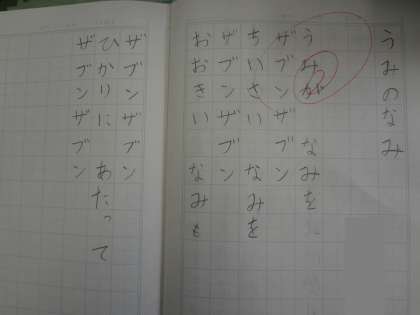 うみのなみ
うみが なみを
ザブンザブン
ちいさい なみを
ザブンザブン
おおきい なみも
ザブンザブン
ひかりに あたって
ザブンザブン